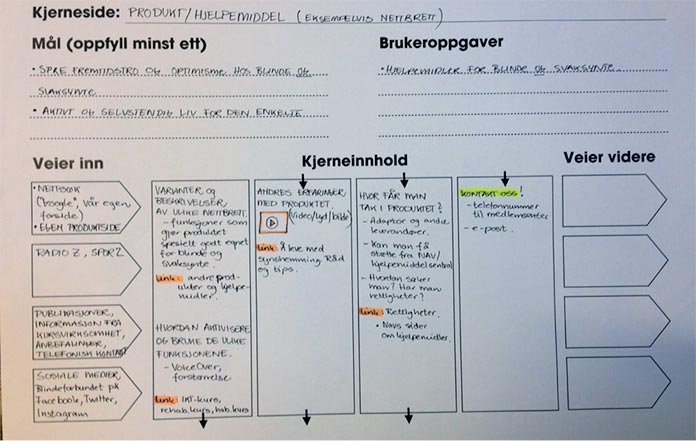 Kjerneside: PRODUKT/HJELPEMIDDEL (EKSEMPELVIS NETTBRETT)
Mål (oppfyll minst ett)
• SPRE FREMTIDSTRO OG OPTIMISME HOS BLINDE OG
SVAKSYNTE.
• AKTIVT OG SELVSTENDIG LIV FOR DEN ENKELTE
Brukeroppgaver
• HJELPEMIDLER FOR BLINDE OG SVAKSYNTE
Veier inn
• NETTSØK
("Google", vår egen
forside)
• EGEN PRODUKTSIDE
RADIO Z, SPOR 2
PUBLIKASJONER,
INFORMASJON FRA
KURSVIRKSOMHET,
ANBEFALINGER,
TELEFONISK KONTAKT
SOSIALE MEDIER,
Blindeforbundet på
Facebook, Twitter,
Instagram
Kjerneinnhold
VARIANTER OG
BESKRIVELSER
AV ULIKE NETTBRETT.
- funksjoner som
gjør produktet
spesielt godt egnet
for blinde og
svaksynte.
Link: andre prod-
ukter og hjelpe-
midler.
HVORDAN AKTIVISERE
OG BRUKE DE ULIKE
FUNKSJONENE.
- VoiceOver,
forstørrelse
Link: IKT-kurs,
rehab.kurs, hab.kurs
ANDRES ERFARINGER
MED PRODUKTET.
(Video/lyd/bilde)
Link: Å leve med
synshemming. Råd
og tips.
HVOR FÅR MAN
TAK I PRODUKTET?
- Adaptor og andre
leverandører.
- Kan man få
støtte fra NAV/
hjelpemiddelsentral
- Hvordan søker
man? Har man
rettigheter?
Link: Rettigheter.
• Navs sider
om hjelpemidler.
KONTAKT OSS!
- telefonnummer
til medlemssenter
- e-post.
Veier videre